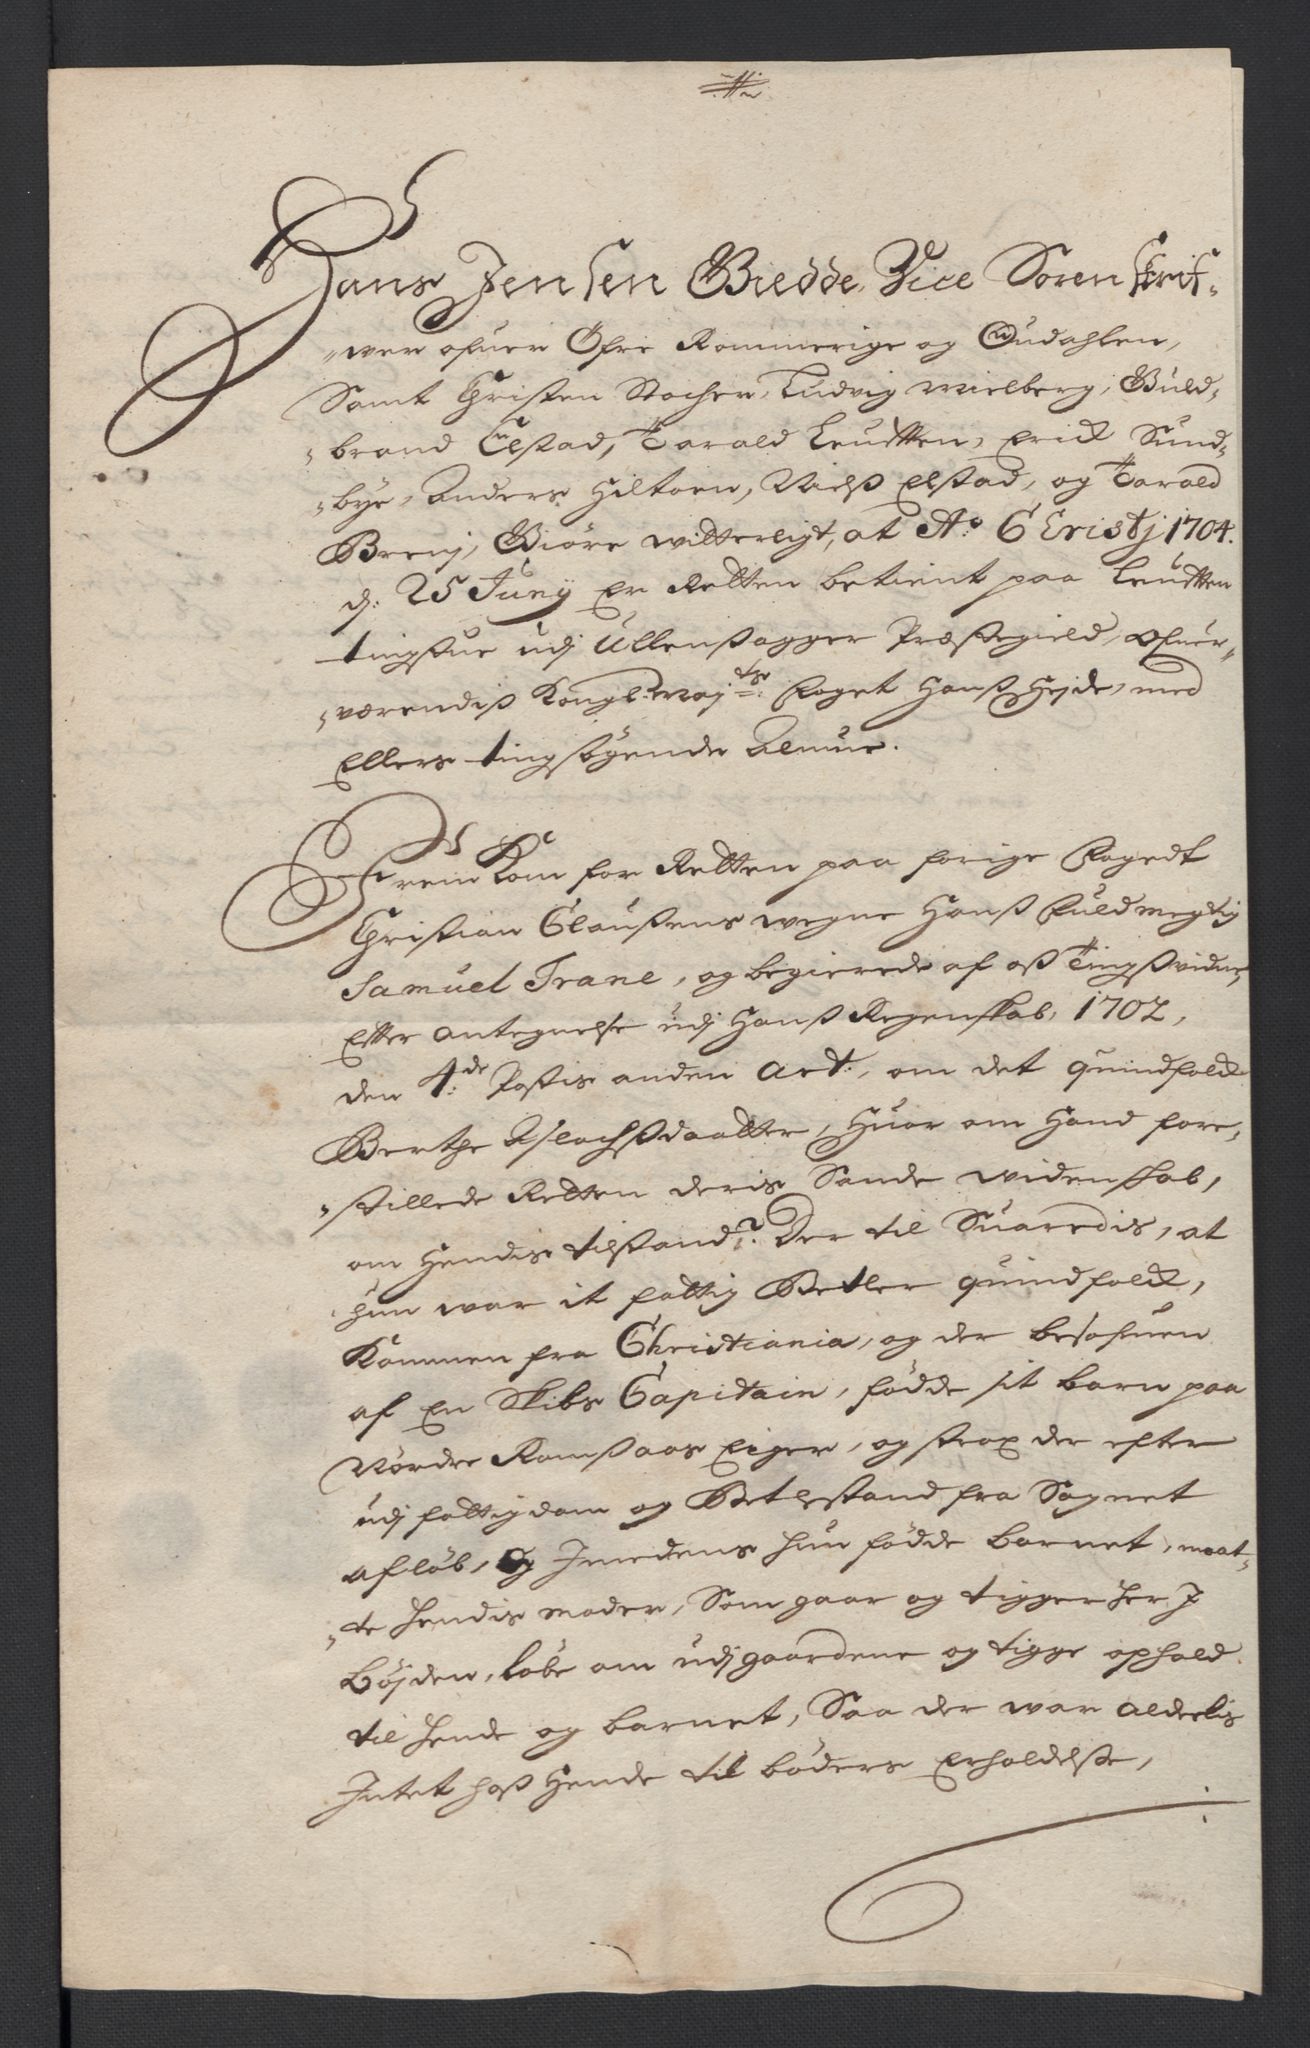 Hans Jensen Giedde, Vice Sorenskrif-
wer ofuer Øfre Rommerige og Oudahlen,
Samt Christen Stocher, Ludvig Mielberg, Guld-
brand Elstad, Tarald Leudtten, Erick Sund-
bye, Anders Hiltoen, Nielß Elstad, og Tarald
Brenj, Giøre witterligt, at Ao: Cristj 1704.
d: 25 Junij Er Retten betient paa Leudtten
tingstue udj Ullensagger Præstegield, ofuer-
værendiß Kongl: May:ts: Foget Hanß Hejde, med
Ellers tingsøgende Almue.
Frem Kom for Retten paa forige Fogedt
Christian Clausens wegne Hanß Fuldmegtig
Samuel Trane, og begierede af oß Tingßvidne,
Efter antegnelse udj Hanß Regenskab, 1702,
den 4:de Postis anden Act:, om det quindfolck
Berthe Aslachßdaatter, Huor om Hand fore-
stillede Retten deris Sande widenskab,
om Hendis tilstand? Der til Suaredis, at
hun war it fattig Betler quindfolck,
Kommen fra Christiania, og der besofuen
af En Skibs Capitain, fødde sit barn paa
Nordre Ramsaas Eiger, og strax der efter
udj fattigdom og Betlstand fra Sognet
afløb, Og Imedens hun fødde barnet, maat-
te hendis moder, Som gaar og tigger her J
Bøjden, løbe om udj gaardene og tigge ophold
til hende og barnet, Saa der war aldelis
Intet hoß Hende til bøders Erholdelße,